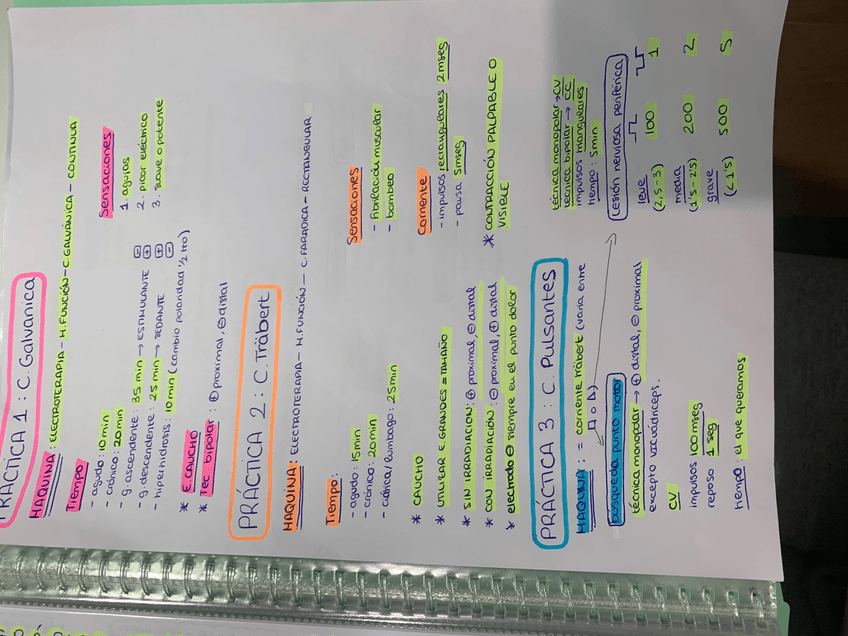 PRÁCTICA 1 : C. Galvanica
MAQUINA : ELECTROTERAPIA - M. FUNCIÓN - C. GALVÁNICA - CONTINUA
Tiempo :
- agudo : 10 min
- crónico : 20 min
- g. ascendente : 35 min → ESTIMULANTE ⊟ ⊞
- g. descendente : 25 min → SEDANTE ⊞ ⊟
- hiperhidrosis : 10 min (cambio polaridad 1/2 tto)
Sensaciones
1. agujas
2. picor eléctrico
3. suave o potente
* E. CAUCHO
* Téc bipolar : ⊕ proximal, ⊖ distal
PRÁCTICA 2 : C. Träbert
MAQUINA : ELECTROTERAPIA - M. FUNCIÓN - C. FARADICA - RECTANGULAR
Tiempo :
- agudo : 15 min
- crónico : 20 min
- ciática / lumbago : 25 min
Sensaciones
- fibrilación muscular
- bombeo
* CAUCHO
* UTILIZAR E. GRANDES = TAMAÑO
* SIN IRRADIACION : ⊕ proximal, ⊖ distal
* CON IRRADIACIÓN : ⊖ proximal, ⊕ distal
* electrodo ⊖ siempre en el punto dolor
Corriente
- impulsos rectangulares 2 mseg
- pausa 5 mseg
* CONTRACCIÓN PALPABLE O
VISIBLE
PRÁCTICA 3 : C. Pulsantes
MAQUINA : = corriente träbert (varia entre
⊓ o Δ)
búsqueda punto motor
técnica monopolar → ⊕ distal, ⊖ proximal
excepto en cuádriceps.
CV
impulsos 100 mseg
reposo 1 seg
tiempo : el que queramos
técnica monopolar → CV
técnica bipolar → CC
impulsos triangulares
tiempo : 5 min
Lesión nerviosa periférica
leve 100 1
(2,5 - 3)
media 200 2
(1'5 - 2'5)
grave 500 5
(< 1'5)